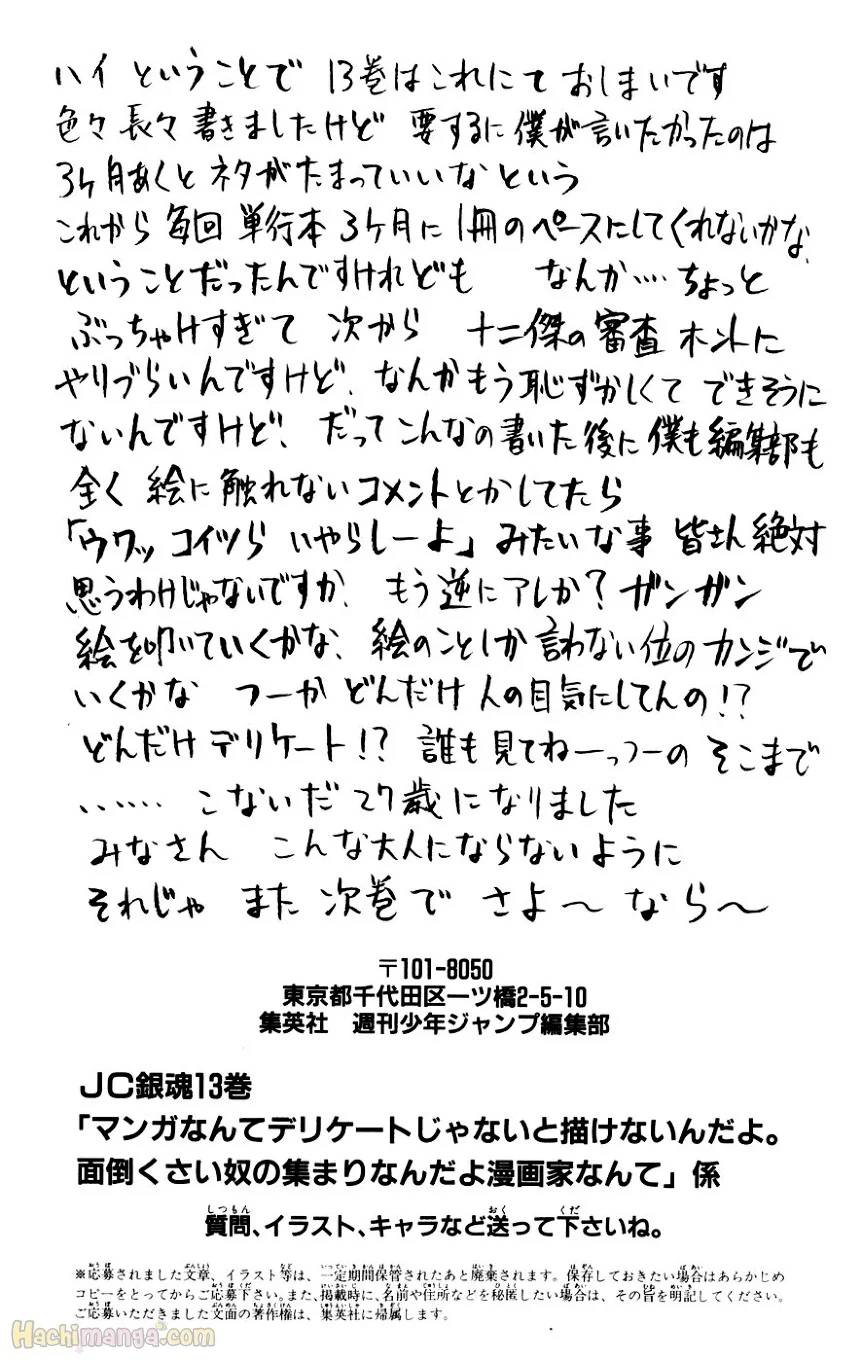 ハイ ということで 13巻はこれにて おしまいです
色々 長々 書きましたけど 要するに 僕が言いたかったのは
3ヶ月あくと ネタがたまっていいなという
これから 毎回 単行本 3ケ月に 1冊のペースにしてくれないかな、
ということだったんですけれども なんか‥‥ちょっと
ぶっちゃけすぎて 次から 十二傑の審査 ホントに
やりづらいんですけど、なんかもう恥ずかしくて できそうに
ないんですけど、だってこんなの書いた後に僕も編集部も
全く 絵に 触れないコメントとかしてたら
「ウワッ コイツら いやらしーよ」みたいな事 皆さん絶対
思うわけじゃないですか、もう逆にアレか?ガンガン
絵を叩いていくかな、絵のことしか言わない位のカンジで
いくかな つーか どんだけ人の目気にしてんの!?
どんだけデリケート!? 誰も見てねーっつーの そこまで
‥‥‥ こないだ27歳になりました
みなさん こんな大人にならないように
それじゃ また 次巻で さよ〜なら〜
〒101-8050
東京都千代田区一ツ橋2-5-10
集英社 週刊少年ジャンプ編集部
JC銀魂13巻
「マンガなんてデリケートじゃないと描けないんだよ。
面倒くさい奴の集まりなんだよ漫画家なんて」係
質問、イラスト、キャラなど送って下さいね。
※応募されました文章、イラスト等は、一定期間保管されたあと廃棄されます。保存しておきたい場合はあらかじめ
コピーをとってからご応募下さい。また、掲載時に、名前や住所などを秘匿したい場合は、その旨を明記してください。
ご応募いただきました文面の著作権は、集英社に帰属します。
Hachimanga.com